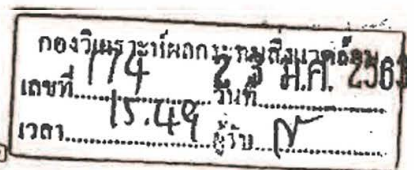 กองวิเคราะห์ผลกระทบสิ่งแวดล้อม
เลขที่ 174 วันที่ 23 ม.ค. 2563
เวลา 15.49 ผู้รับ